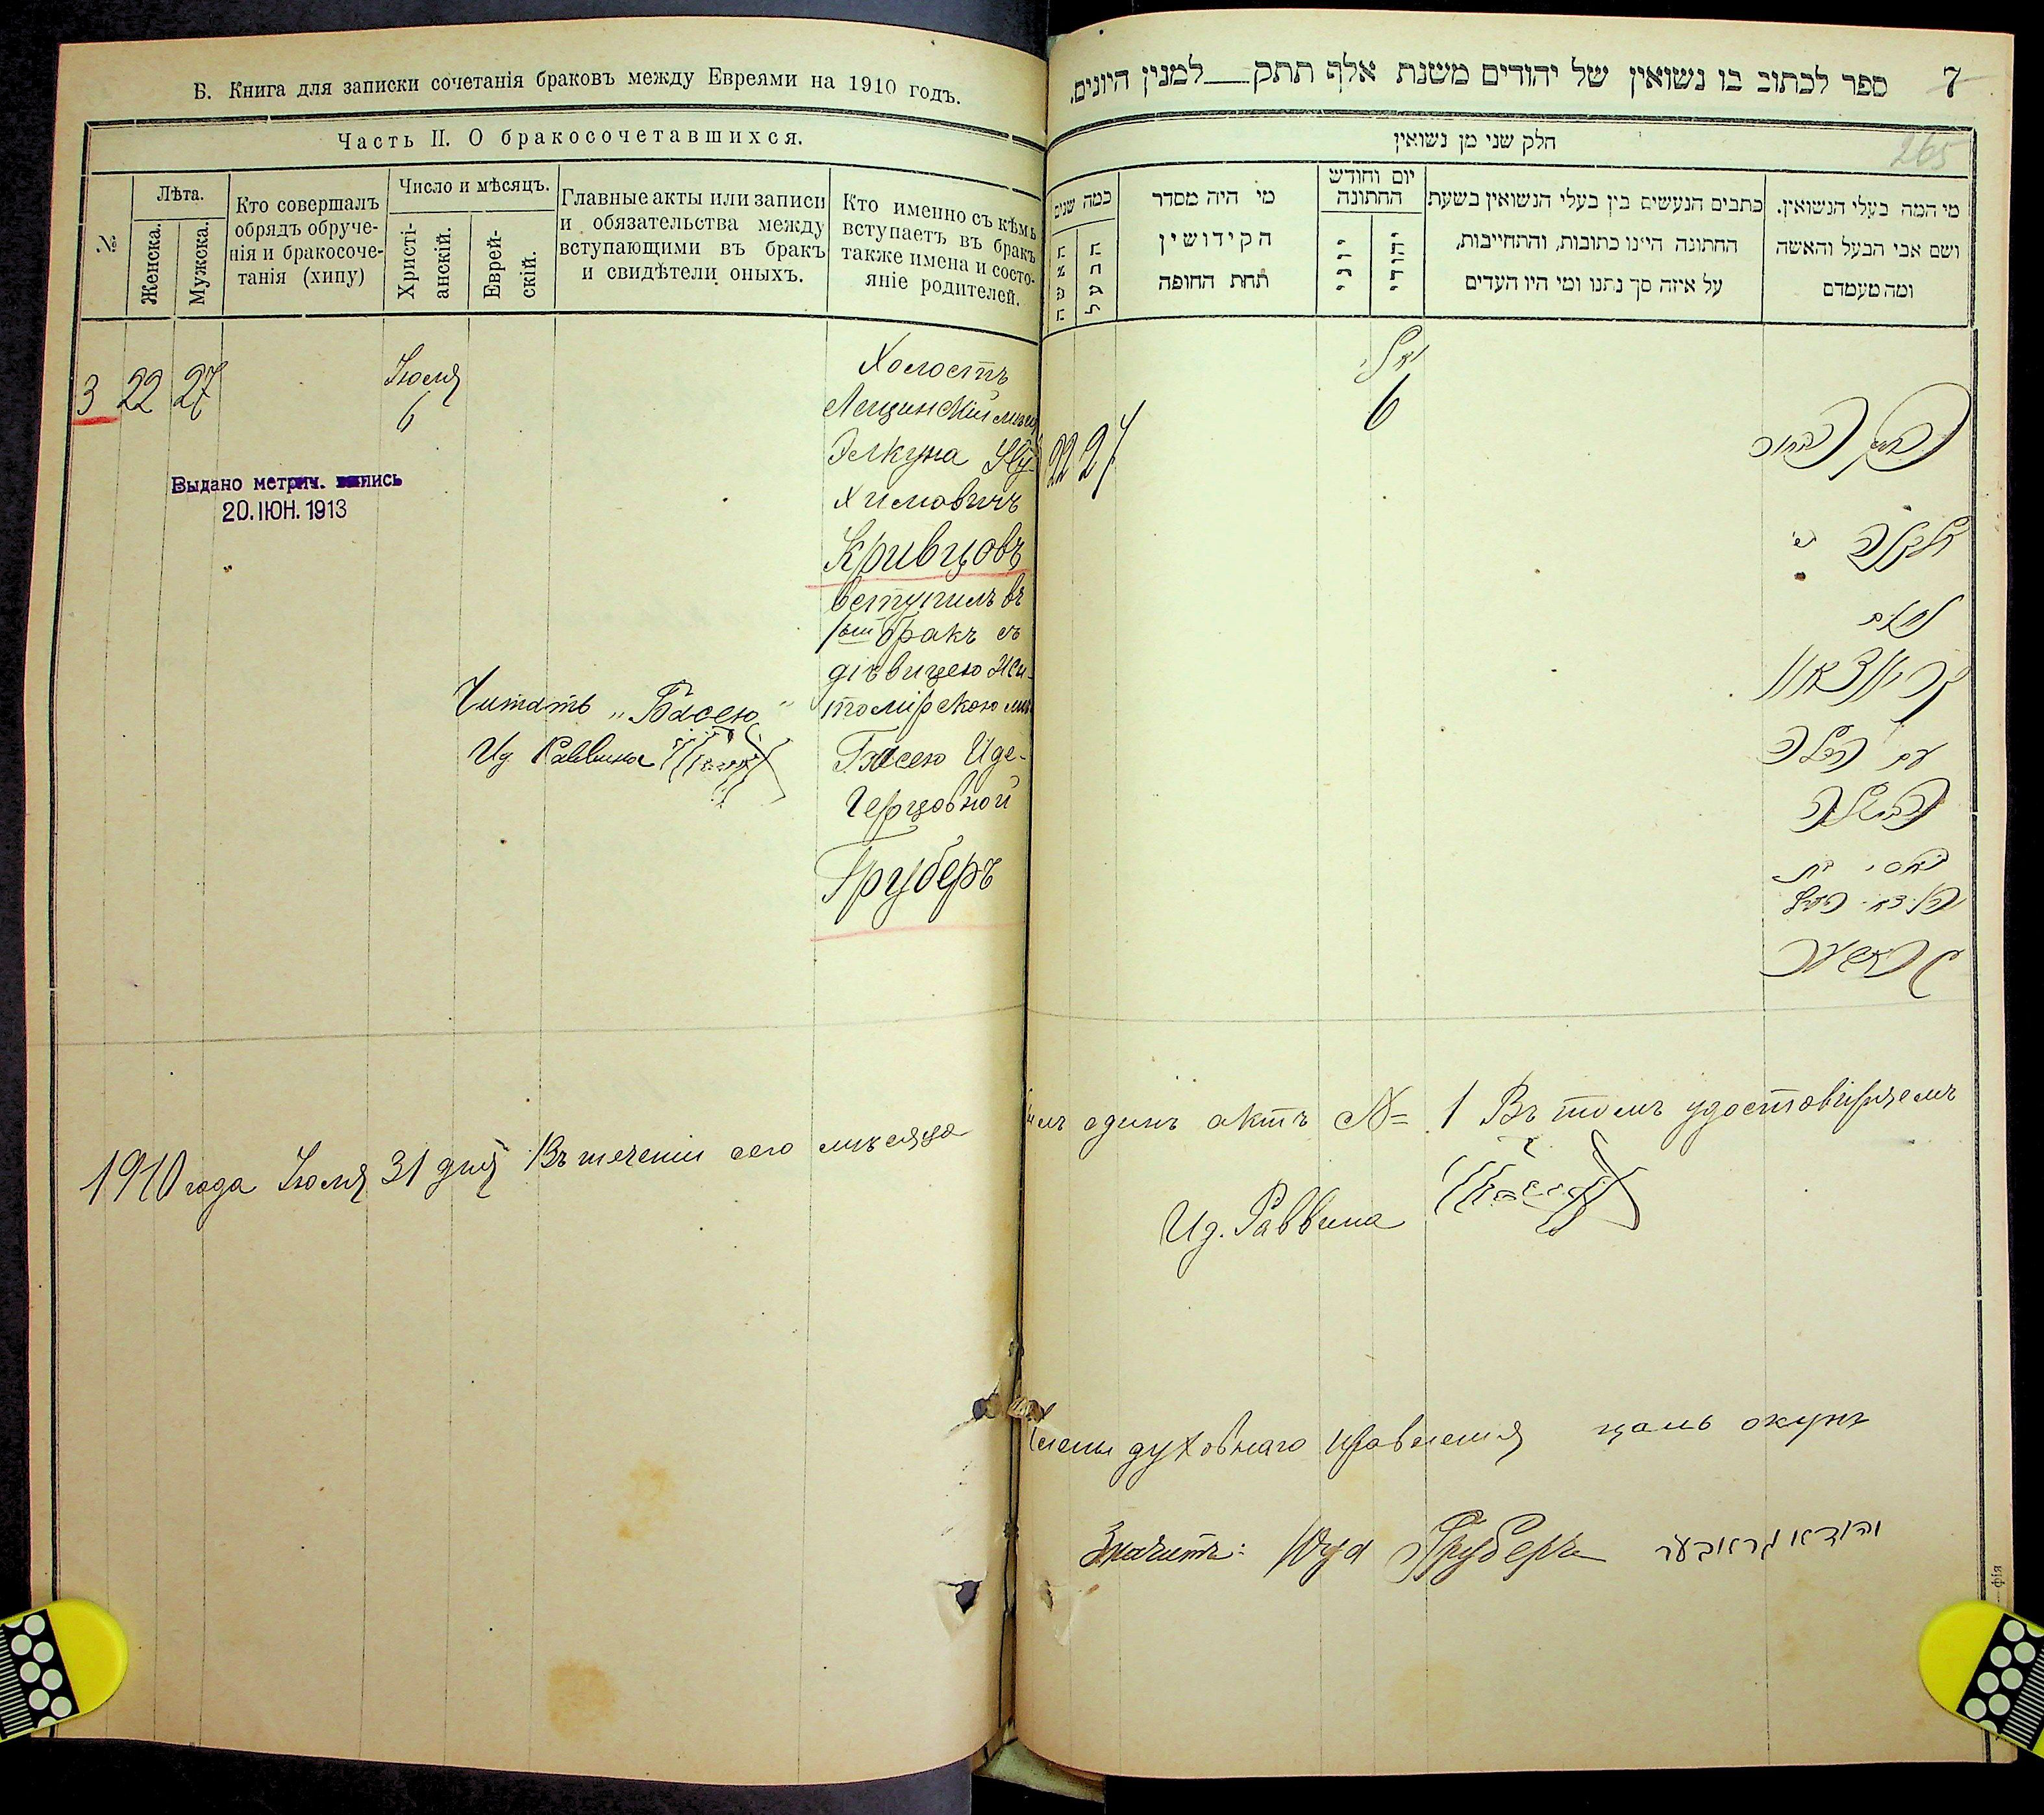 Б. Книга для записки сочетанія браковъ между Евреями на 1910 годъ.
Часть II. О бракосочетавшихся.
№
Лѣта.
Женска.
Мужска.
Кто совершалъ
обрядъ обруче-
нія и бракосоче-
танія (хипу)
Число и мѣсяцъ.
Христі-
анскій.
Еврей-
скій.
Главные акты или записи
и обязательства между
вступающими въ бракъ
и свидѣтели оныхъ.
Кто именно съ кѣмъ
вступаетъ въ бракъ
также имена и состо-
яніе родителей.
3 22 27
Іюля
6
Выдано метрич. запись
20.ІЮН.1913
Холостъ
Элкуна Ну-
химовичъ
Кривцовъ
вступилъ въ
1ый бракъ съ
дѣвицею Жи-
томірскою мѣщ
Басею Иде-
Герцовной
Груберъ
Читать „Басею"
Ид Раввина
1910 года Іюля 31 дня Въ теченіи сего мѣсяца
7
ספר לכתוב בו נשואין של יהודים משנת אלף תתק__למנין היונים.
265
חלק שני מן נשואין
מי המה בעלי הנשואין.
ושם אבי הבעל והאשה
ומה מעמדם
כתבים הנעשים בין בעלי הנשואין בשעת
החתונה היינו כתובות, והתחייבות,
על איזה סך נתנו ומי היו העדים
יום וחודש
החתונה
יהודי
יוני
מי היה מסדר
הקידושין
תחת החופה
כמה שנים
הבעל
האשה
יולי
6
22 27
הבחור
אלקנה
נחום
קריווצאוו
עם
הבתולה
באסי בת
גראבער
одинъ актъ № 1 Въ томъ удостовѣряемъ
Ид. Раввина
Члены духовнаго правленія
окунь
Значитъ: Юда Груберъ יהודא גראבער
фія